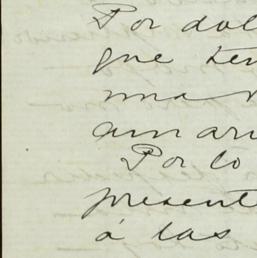 Por dol
que ten
una
aun ari
Por lo
present
á las